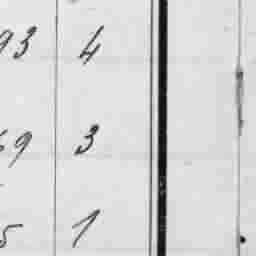 93 4
69 3
5 1